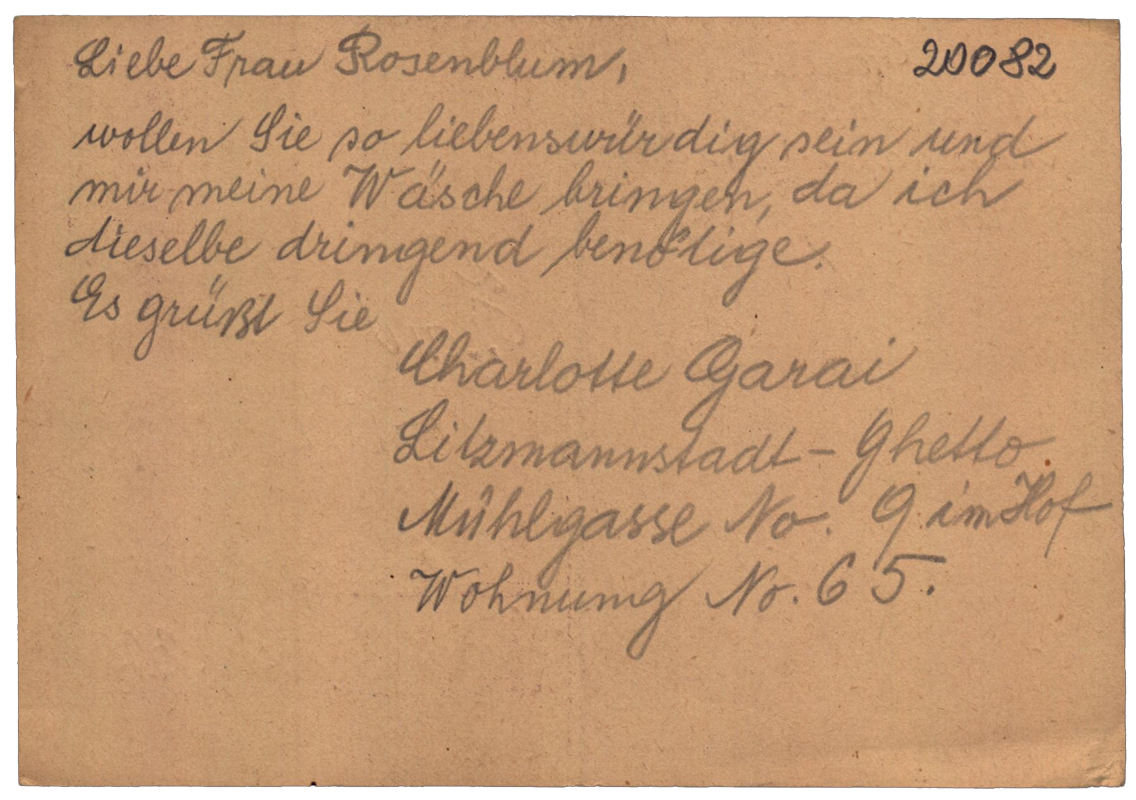 Liebe Frau Rosenblum,
20082
wollen Sie so liebenswürdig sein und
mir meine Wäsche bringen, da ich
dieselbe dringend benötige.
Es grüßt Sie
Charlotte Garai
Litzmannstadt - Ghetto
Mühlgasse No. 9 im Hof
Wohnung No. 65.